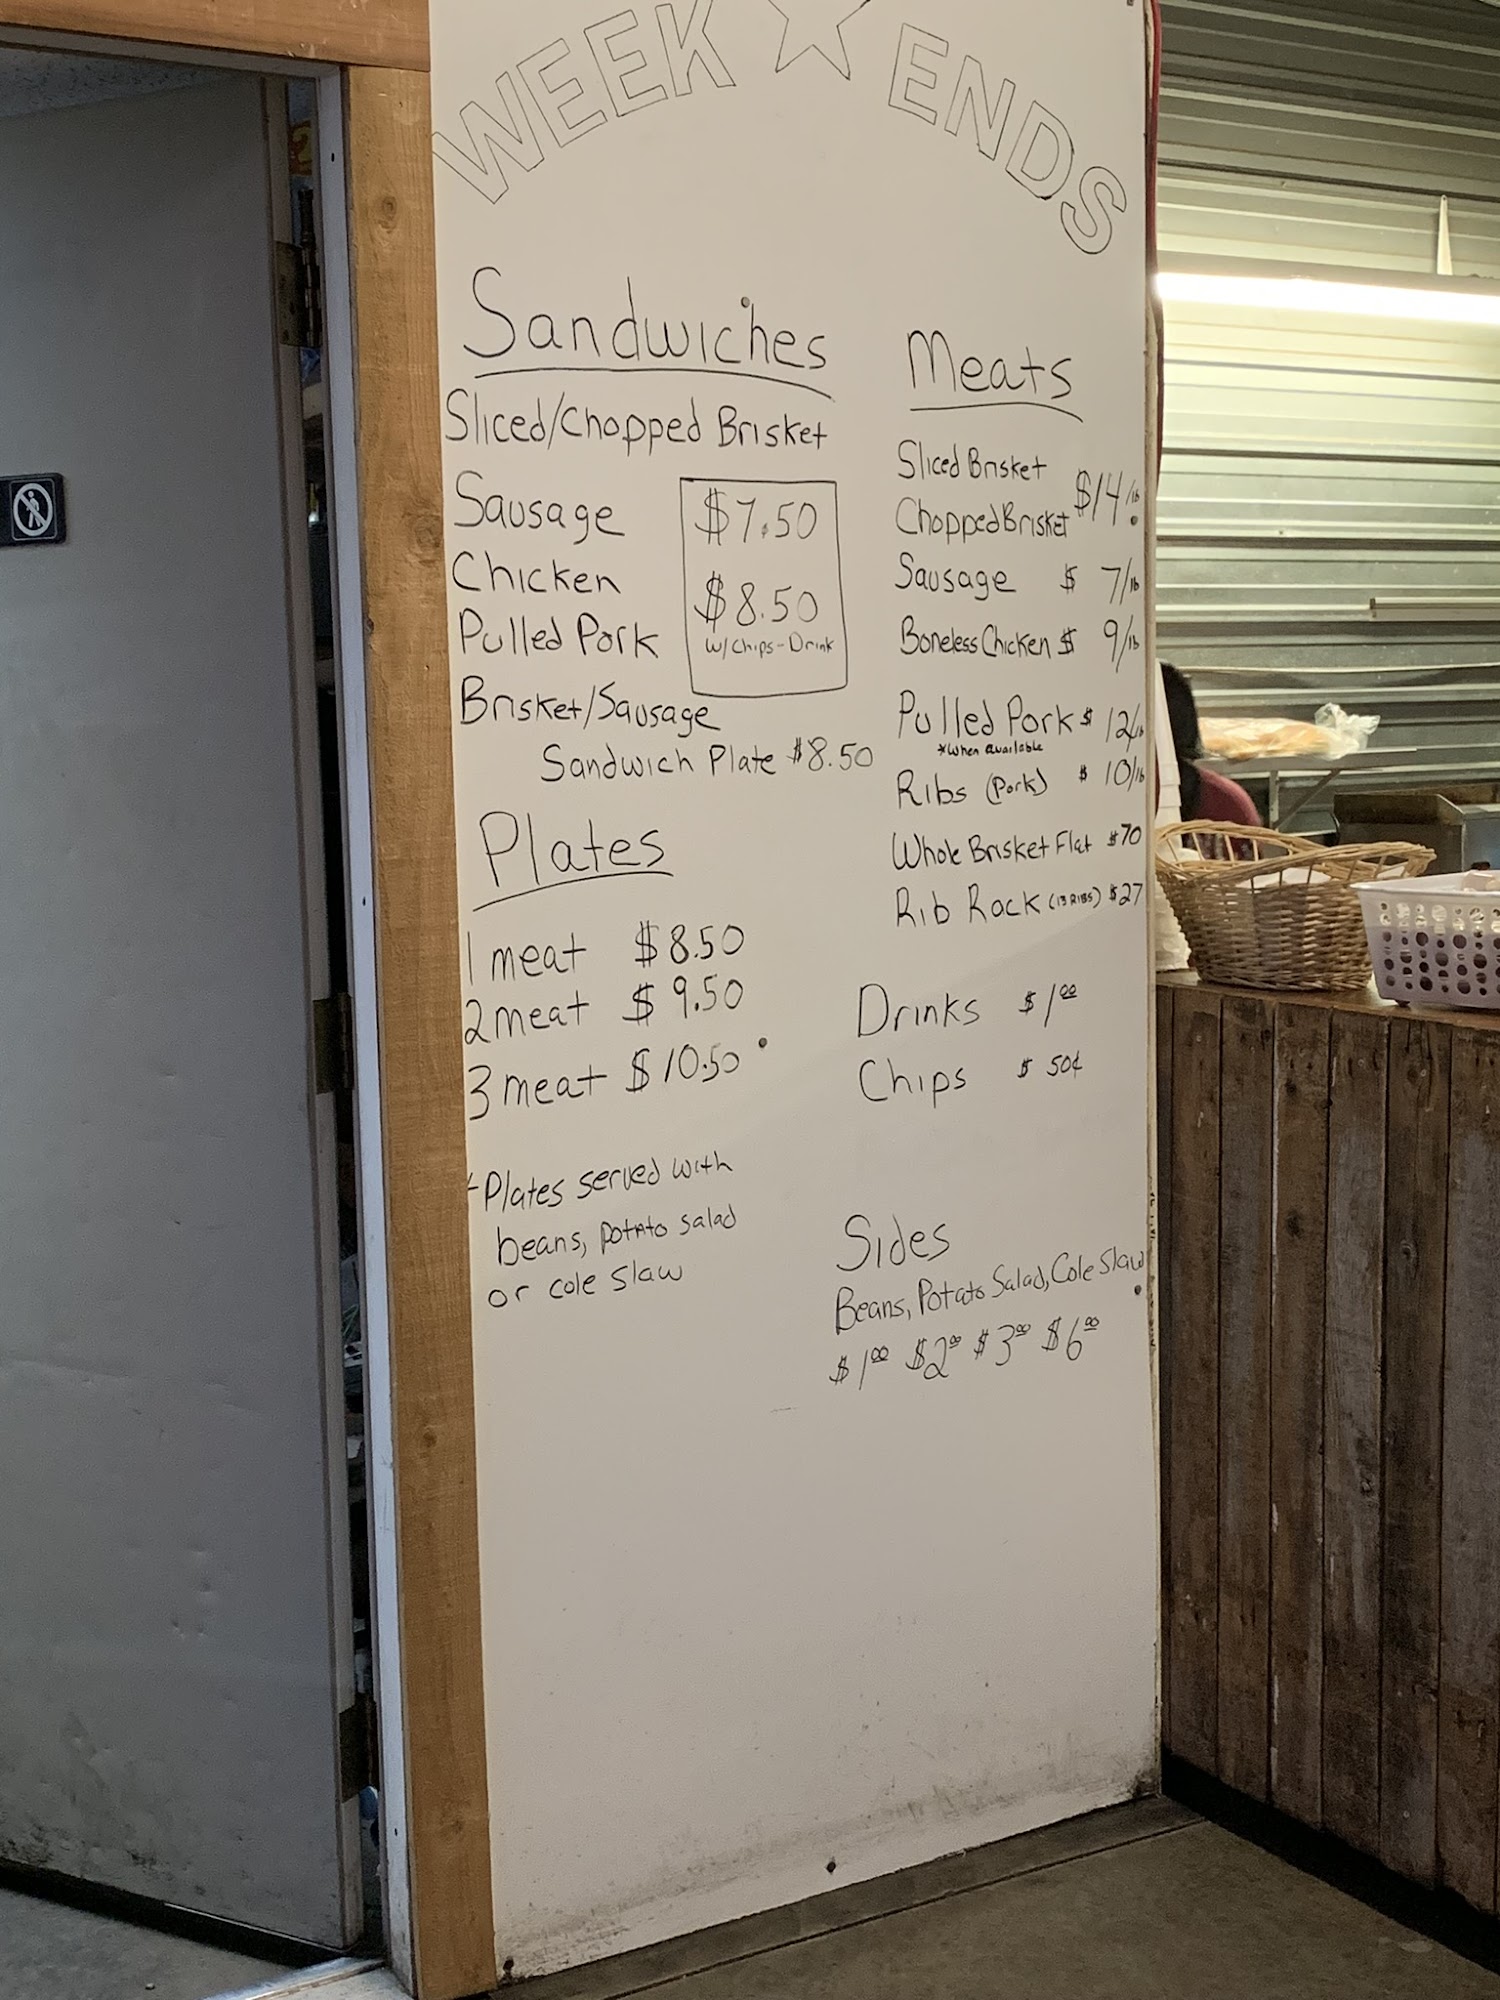 WEEK ENDS
Sandwiches
Sliced/Chopped Brisket
Sausage
Chicken
Pulled Pork
$7.50
$8.50
w/Chips-Drink
Brisket/Sausage
Sandwich Plate $8.50
Plates
1 meat $8.50
2 meat $9.50
3 meat $10.50
*Plates served with
beans, potato salad
or cole slaw
Meats
Sliced Brisket
Chopped Brisket $14/lb
Sausage $ 7/lb
Boneless Chicken $ 9/lb
Pulled Pork $ 12/lb
*When available
Ribs (Pork) $ 10/lb
Whole Brisket Flat $70
Rib Rack (13 RIBS) $27
Drinks $1.00
Chips $ 50¢
Sides
Beans, Potato Salad, Cole Slaw
$1.00 $2.00 $3.00 $6.00